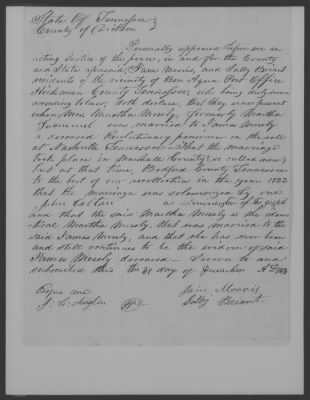 State of Tennessee }
County of Dickson }
Personally appeared before me an
acting Justice of the peace, in and for the County
and State aforesaid, Jane Morris, and Sally Briant
residents of the vicinity of Bon Aqua Post Office
Hickman County Tennessee, who being duly sworn
according to law, doth declare, that they were present
when Mrs Martha Mosely, formerly Martha
was married to James Mosely
a deceased Revolutionary pensioner on the roll
at Nashville Tennessee - That the marriage
took place in Marshall County (so called now)
but at that time, Bedford County Tennessee
to the best of our recollection in the year 1822
that the marriage was solemnized by one
John a minister of the gospel
and that the said Martha Mosely is the iden-
tical Martha Mosely, that was married to the
said James Mosely, and that she has ever been
and still continues to be the widow of said
James Mosely deceased - Sworn to and
subscribed this the 31 day of December AD
Before me
J. C. Jane Morris
Sally Briant